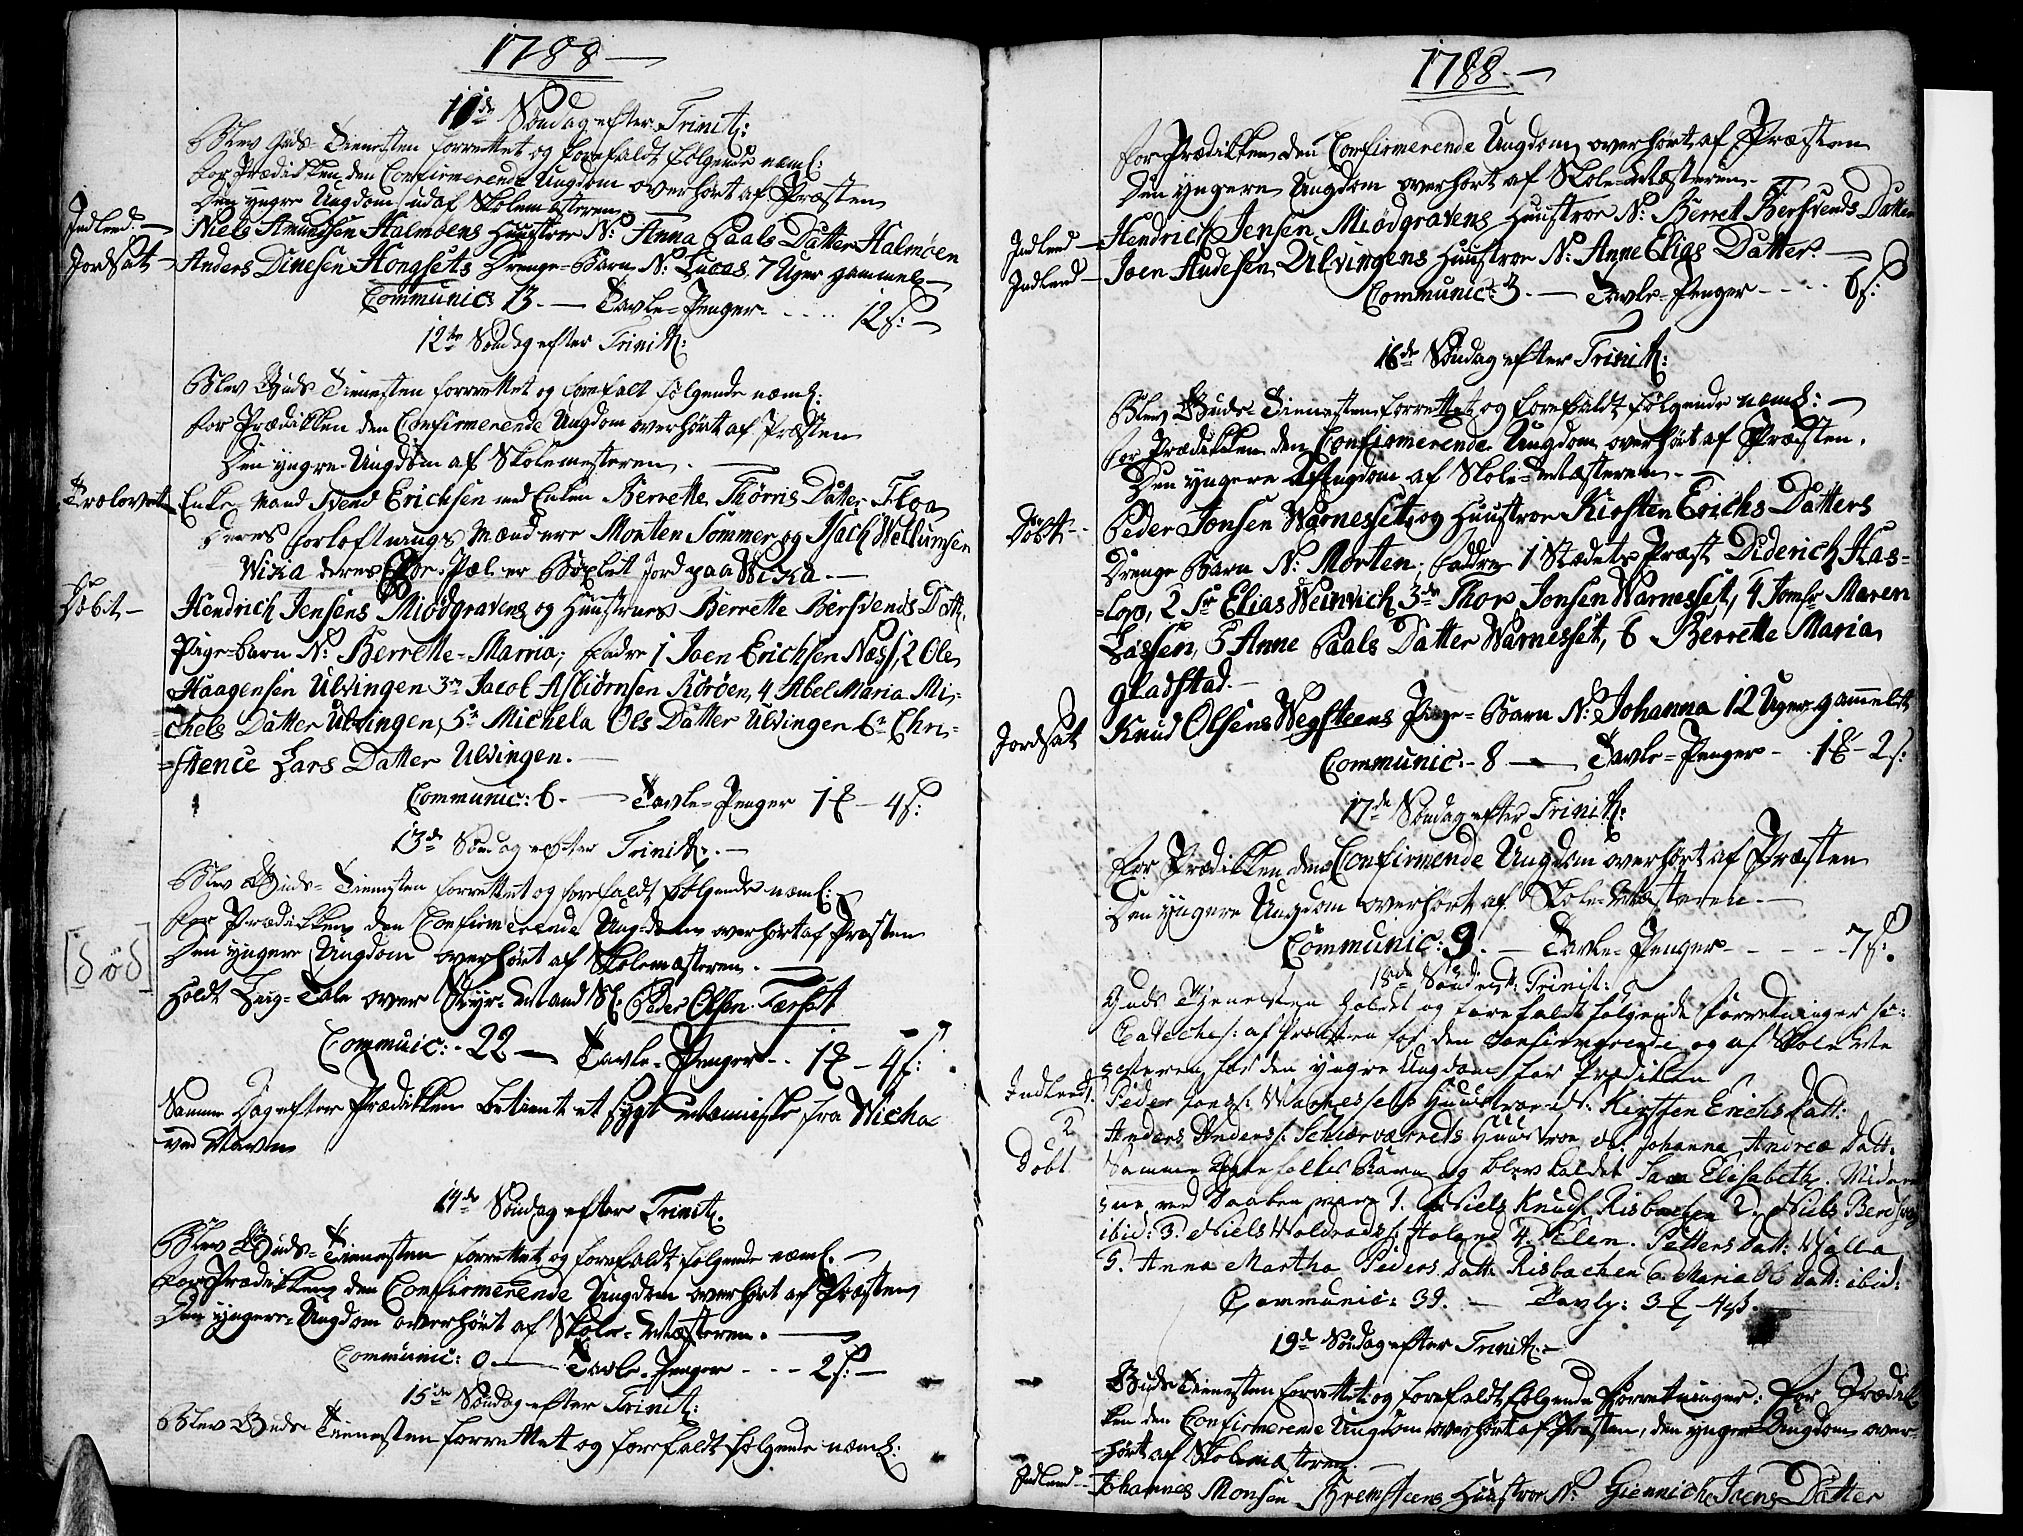 1788 —
11de Søndag efter Trinit:
Blev Guds Tienesten forrettet og forefaldt følgende neml:
for Prædikken den Confirmerende Ungdom overhørt af Præsten
Den yngre Ungdom udaf Skolemesteren
Indled. — Niels Amundsen Halmøens Huustroe N: Anna Paals Datter Halmøen
Jordsat — Anders Dinesen Hongsets Drenge-Barn N: Lucas 7 Uger gammel —
Communic: 13. — Tavle-Penger . . . . 12 s: —
12te Søndag efter Trinit:
Blev Guds Tienesten forrettet og forefalt følgende neml:
for Prædikken den Confirmerende Ungdom overhørt af Præsten
Den yngre Ungdom af Skolemesteren. —
Trolovet Enke-Mand Svend Erichsen med Enken Berrette Thørris Datter Floa
Deres Forlofvnings Mænd ere Monten Sommer og Isach Wellumsen
Wika deres Boe-Pæl er Bøxlet Jord paa Wika. —
Døbt — Hendrich Jensens Miødgravens og Huustrues Berrette Bersvends Datt.
Pige-barn N: Berrette-Marria; Fadre 1 Joen Erichsen Næss, 2 Ole
Haagensen Ulvingen 3. Jacob Asbiørnsen Rørøen, 4 Abel Maria Mi-
chels Datter Ulvingen, 5. Michela Ols Datter Ulvingen 6. Chri-
stence Lars Datter Ulvingen. —
Communic: 6. — Tavle-Penger 1 — 4 s:
13de Søndag efter Trinit: —
Blev Guds-Tienesten forrettet og forefaldt følgende neml: —
for Prædikken den Confirmerende Ungdom overhørt af Præsten
Den yngere Ungdom overhørt af Skolemæsteren. —
[død] Holdt Liig-Tale over Styr-Mand Sl. Peder Olsen Færset
Commuic: - 22 — Tavle-Penger - - 1 — 4 s:
Samme Dag efter Prædikken betient et sygt Menniske fra Wicha
ved Navn
14de Søndag efter Trinit.
Blev Guds-Tienesten forrettet og forefaldt følgende neml. —
for Prædikken den Confirmerende Ungdom overhørt af Præsten
Den yngere-Ungdom overhørt af Skole-Mæsteren. —
Communic: 0 — Tavle-Penger - - - 2 s: —
15de Søndag efter Trinit:
Blev Guds Tienesten forrettet og forefaldt følgende neml:
1788. —
for Prædikken den Confirmerende Ungdom overhørt af Præsten
Den yngere Ungdom overhørt af Skole-Mæsteren. —
Indled — Hendrich Jensen Miødgravens Huustroe N: Berret Bersvends Datter
Indled — Joen Andesen Ulvingens Huustroe N: Anne Elias Datter. —
Communic: 3. — Tavle-Penger - - - - 6 s:
16de Søndag efter Trinit:
Blev Guds-Tienesten forrettet og forefaldt følgende neml: —
for Prædikken den Confirmerende Ungdom overhørt af Præsten.
Den yngere Ungdom af Skole-Mæsteren. —
Døbt - Peder Jonsen Warnesset, og Huustroe Kirsten Erichs Datters
Drenge Barn N: Morten; Faddre 1 Stædets Præst Diderich Has-
lop, 2 Sr Elias Weinrich 3de Thor Jonsen Warnesset, 4 Jomfr Maren
Lassen, 5 Anne Paals Datter Warnesset, 6 Berrette Maria
Gladstad. —
Jordsat Knud Olsens Wegsteens Pige-Barn N: Johanna 12 Uger gammelt
Communic: - 8 — Tavle-Penger - 1 - 2 s:
17de Søndag efter Trinit:
for Prædikken den Confirmende Ungdom overhørt af Præsten
Den yngere Ungdom overhørt af Skole-Mæsteren. —
Communic: 9. — Tavle-Penger - - - - 7 s:
18de Sønd: eft: Trinit:
Guds Tjenesten holdet og forefaldt følgende forretninger
Cateches: af Præsten for den Confirmerende og af Skole Me-
esteren for den yngre Ungdom før Prædiken
Indledt. Peder Jonss: Warnessets Huustroe N: Kirsten Erichs Datt:
2 Anders Anders: Schierværrets Huustroe N: Johanna Andreæ Datt.
Døbt Samme Ægtefolkes Barn og blev kaldet Sara Elisabeth. Vidner-
ne ved Daaben vare 1. Niels Knuds: Risbachen 2. Niels
ibid: 3. Niels Holand 4. Elen Petters datt: Walla
5. Anna Martha Peders datt: Risbachen 6. Maria Ols datt: ibid:
Communic: 39. — Tavlp: 3 — 4 s.
19de Søndag efter Trinit. —
Guds Tienesten forrettet og forefaldt følgende forretninger: For Prædik-
ken den Confirmerende Ungdom overhørt af Præsten, den yngre Ungdom over-
hørt af Skolemæsteren.
Indled — Johannes Monsen Bremsteens Huustroe N: Giennich Joens Datter